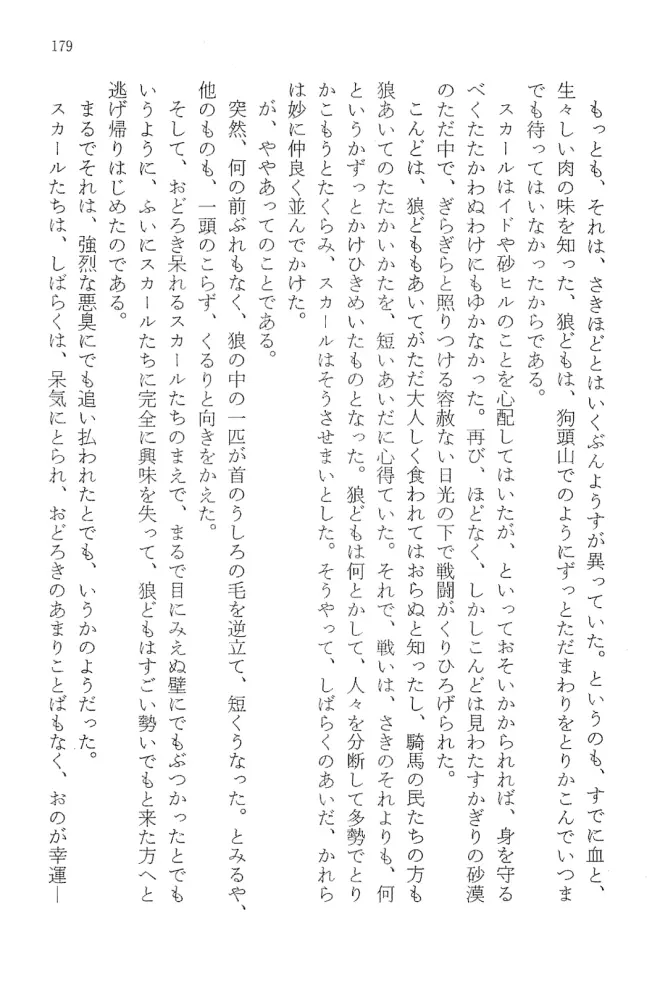 179
もっとも、それは、さきほどとはいくぶんようすが異っていた。というのも、すでに血と、
生々しい肉の味を知った、狼どもは、狗頭山でのようにずっとただまわりをとりかこんでいつま
でも待ってはいなかったからである。
スカールはイドや砂ヒルのことを心配してはいたが、といっておそいかかられれば、身を守る
べくたたかわぬわけにもゆかなかった。再び、ほどなく、しかしこんどは見わたすかぎりの砂漠
のただ中で、ぎらぎらと照りつける容赦ない日光の下で戦闘がくりひろげられた。
こんどは、狼どももあいてがただ大人しく食われてはおらぬと知ったし、騎馬の民たちの方も
狼あいてのたたかいかたを、短いあいだに心得ていた。それで、戦いは、さきのそれよりも、何
というかずっとかけひきめいたものとなった。狼どもは何とかして、人々を分断して多勢でとり
かこもうとたくらみ、スカールはそうさせまいとした。そうやって、しばらくのあいだ、かれら
は妙に仲良く並んでかけた。
が、ややあってのことである。
突然、何の前ぶれもなく、狼の中の一匹が首のうしろの毛を逆立て、短くうなった。とみるや、
他のものも、一頭のこらず、くるりと向きをかえた。
そして、おどろき呆れるスカールたちのまえで、まるで目にみえぬ壁にでもぶつかったとでも
いうように、ふいにスカールたちに完全に興味を失って、狼どもはすごい勢いでもと来た方へと
逃げ帰りはじめたのである。
まるでそれは、強烈な悪臭にでも追い払われたとでも、いうかのようだった。
スカールたちは、しばらくは、呆気にとられ、おどろきのあまりことばもなく、おのが幸運―